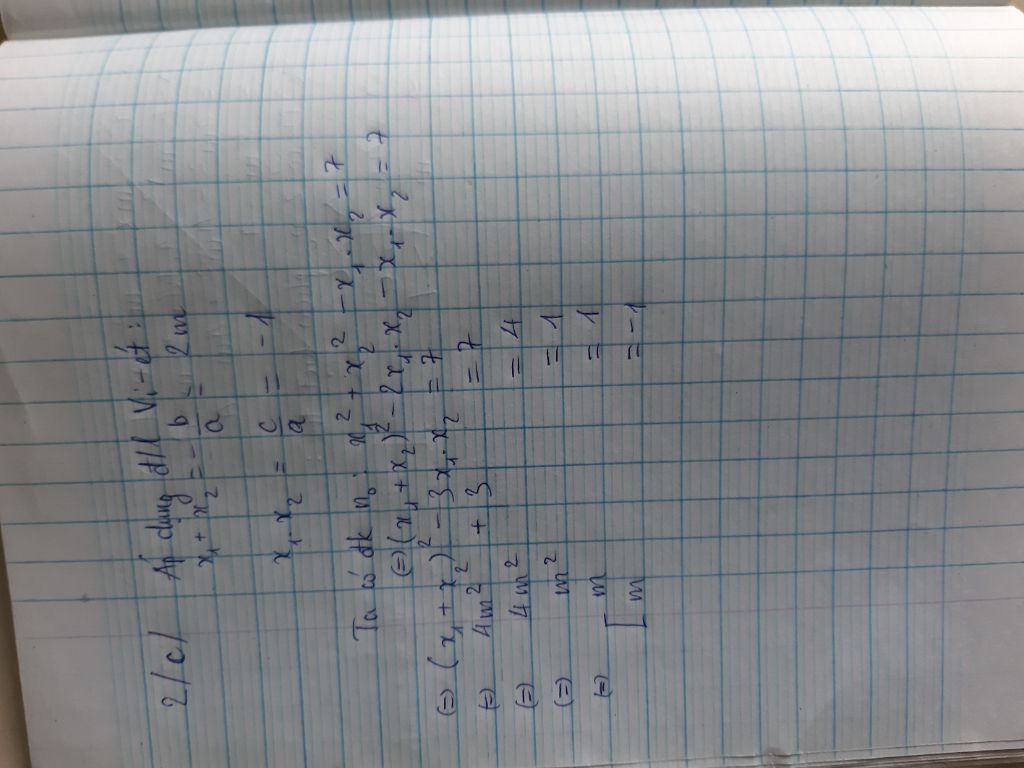 2/ c/ Áp dụng đ/l Vi-ét:
x₁ + x₂ = -b/a = 2m
x₁.x₂ = c/a = -1
Ta có đk n₀: x₁² + x₂² - x₁.x₂ = 7
(=) (x₁ + x₂)² - 2x₁.x₂ - x₁.x₂ = 7
(=) (x₁ + x₂)² - 3x₁.x₂ = 7
(=) 4m² + 3 = 7
(=) 4m² = 4
(=) m² = 1
(=) [ m = 1
m = -1